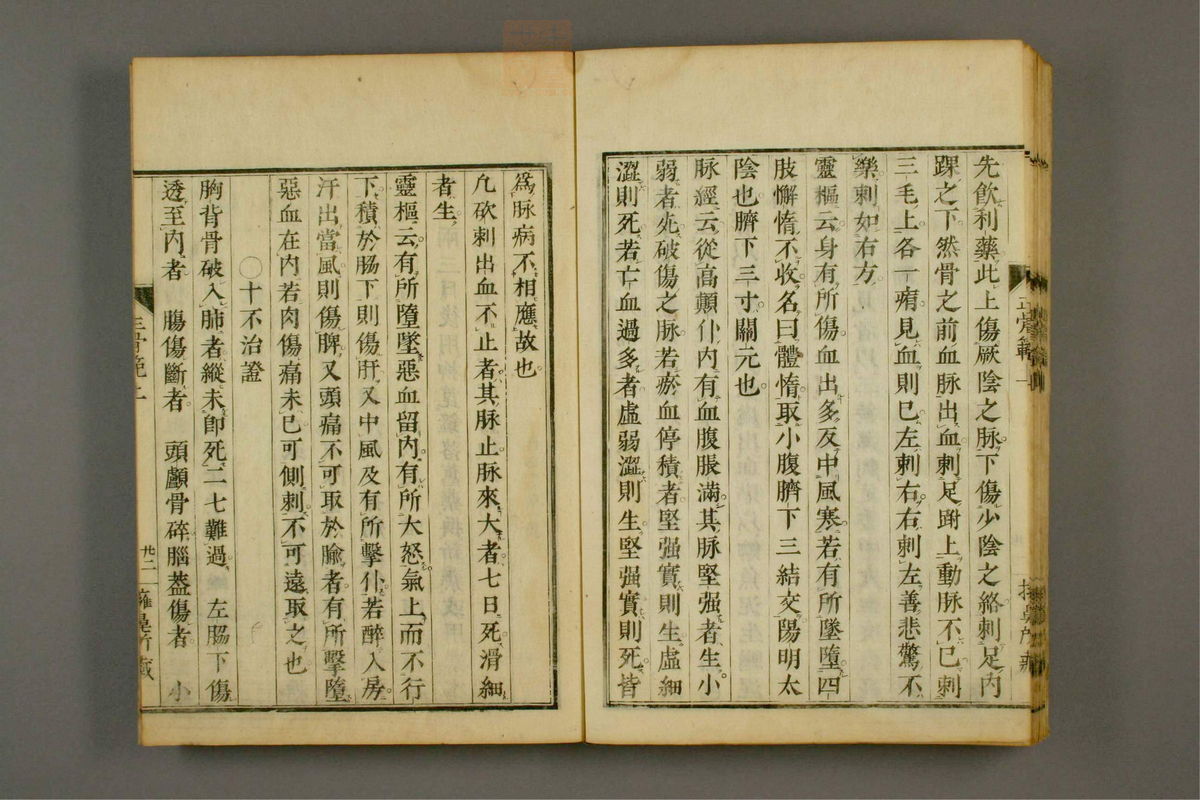 先飲利藥此上傷厥陰之脉下傷少陰之絡刺足內
踝之下然骨之前血脉出血刺足跗上動脉不已刺
三毛上各一痏見血則已左刺右右刺左善悲驚不
樂刺如右方
靈樞云身有所傷血出多及中風寒若有所墜墮四
肢懈惰不收名曰體惰取小腹臍下三結交陽明太
陰也臍下三寸關元也
脉經云從高顛仆内有血腹脹滿其脉堅强者生小
弱者死破傷之脉若瘀血停積者堅强實則生虛細
澀則死若亡血過多者虛弱澀則生堅强實則死皆
爲脉病不相應故也
凢砍刺出血不止者其脉止脉來大者七日死滑細
者生
靈樞云有所墮墜惡血留内有所大怒氣上而不行
下積於肠下則傷肝又中風及有所擊仆若醉入房
汗出當風則傷脾又頭痛不可取於腧者有所擊墮
惡血在内若肉傷痛未已可側刺不可遠取之也
○十不治證
胸背骨破入肺者縱未卽死二七難過 左脇下傷
透至内者 腸傷斷者 頭顱骨碎腦葢傷者 小
正骨範 上
廿二